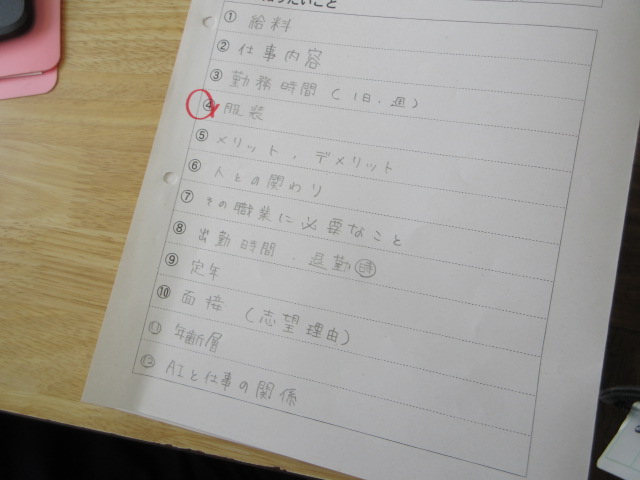 りたいこと
① 給料
② 仕事内容
③ 勤務時間 (1日、週)
④ 服装
⑤ メリット、デメリット
⑥ 人との関わり
⑦ その職業に必要なこと
⑧ 出勤時間、退勤時
⑨ 定年
⑩ 面接 (志望理由)
⑪ 年齢層
⑫ AIと仕事の関係